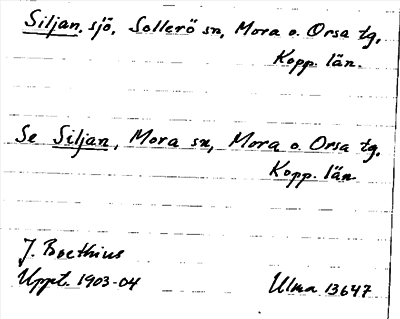 Siljan, sjö, Sollerö sn, Mora o. Orsa tg,
Kopp. län.
Se Siljan, Mora sn, Mora o. Orsa tg,
Kopp. län
J. Boethius
Uppt. 1903-04
Ulma 13647